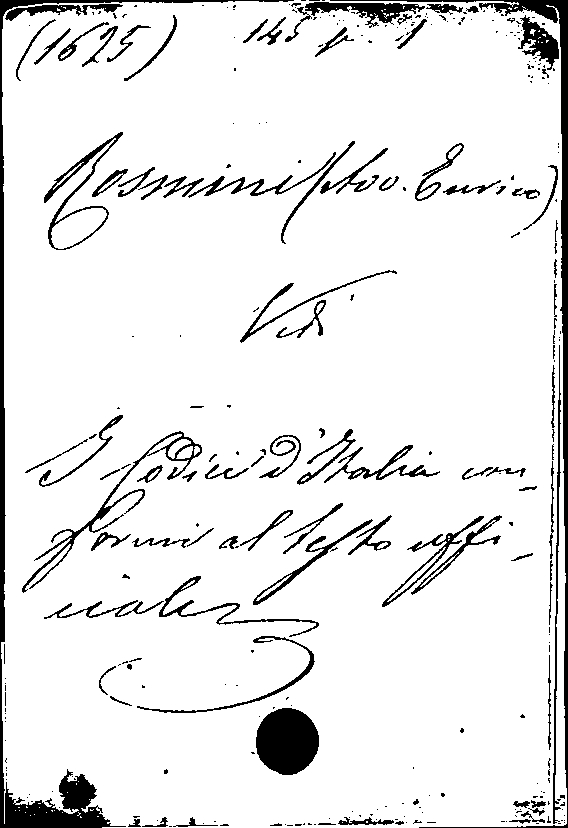 (1625) 145 p. 1
Rosmini (Avv. Enrico)
Vedi
I Codici d'Italia con-
formi al testo uffi-
ciale